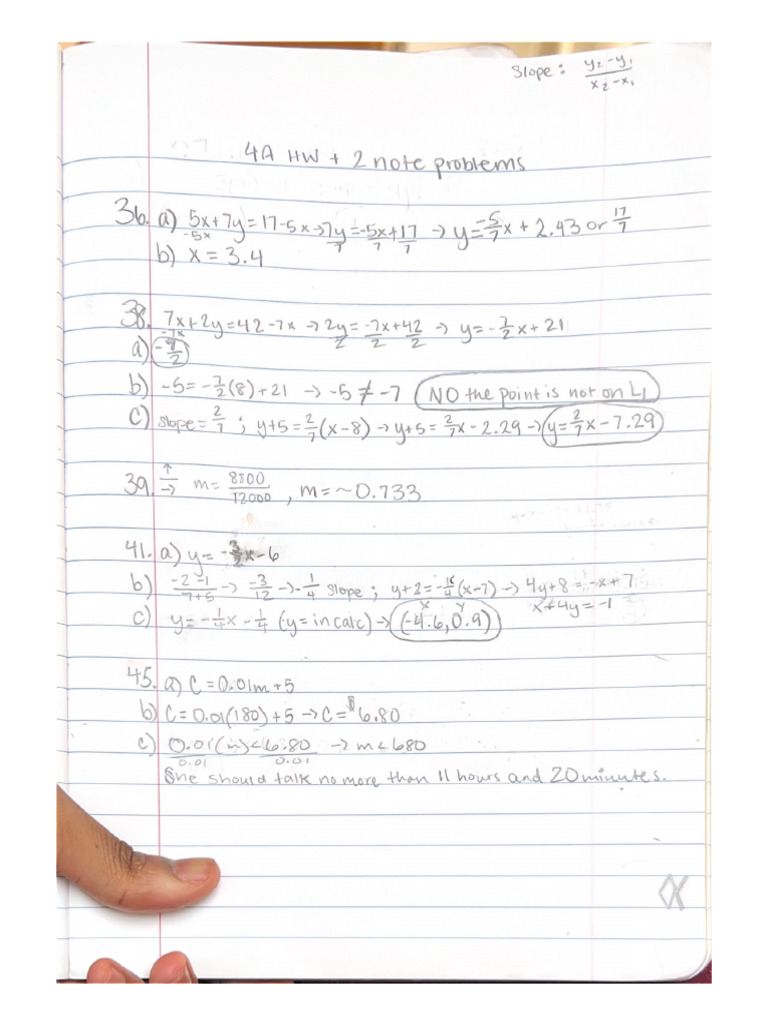 Slope: y₂-y₁ / x₂-x₁
4A HW + 2 note problems
36. a) 5x+7y=17-5x→7y/7=-5x/7+17/7 → y=-5/7x + 2.43 or 17/7
-5x
b) x = 3.4
38. 7x+2y=42-7x → 2y/2=-7x/2+42/2 → y=-7/2x+21
-7x
a) -7/2
b) -5=-7/2(8)+21 → -5≠-7 NO the point is not on L1
c) slope=2/7 ; y+5=2/7(x-8) → y+5=2/7x-2.29→ y=2/7x-7.29
39. ↑/→ m= 8800/12000 , m=~0.733
41. a) y= -3/2x-6
b) -2-1/7+5 → -3/12 →-1/4 slope ; y+2=-1/4(x-7) → 4y+8=-x+7
x+4y=-1
c) y=-1/4x-1/4 (y= in calc) → (-4.6,0.9)
x y
45. a) C=0.01m+5
b) C=0.01(180)+5 →C=$6.80
c) 0.01(m)/0.01<6.80/0.01 → m<680
She should talk no more than 11 hours and 20 minutes.